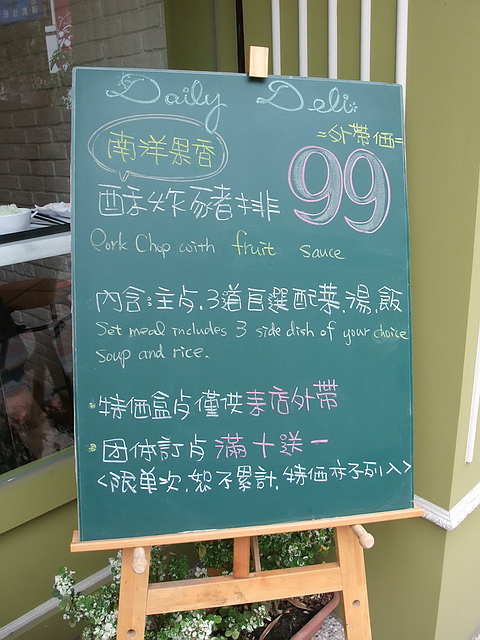 Daily Deli
=外帶価=
南洋果香
99
酥炸豬排
Pork Chop with fruit sauce
內含:主餐,3道自選配菜,湯,飯
Set meal includes 3 side dish of your choice
soup and rice.
特価盒餐僅供來店外帶
团体訂餐滿十送一
<限單次,恕不累計,特価亦不列入>